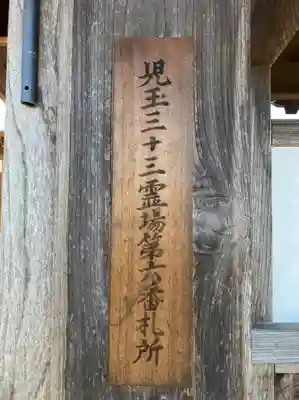 児玉三十三霊場第六番札所